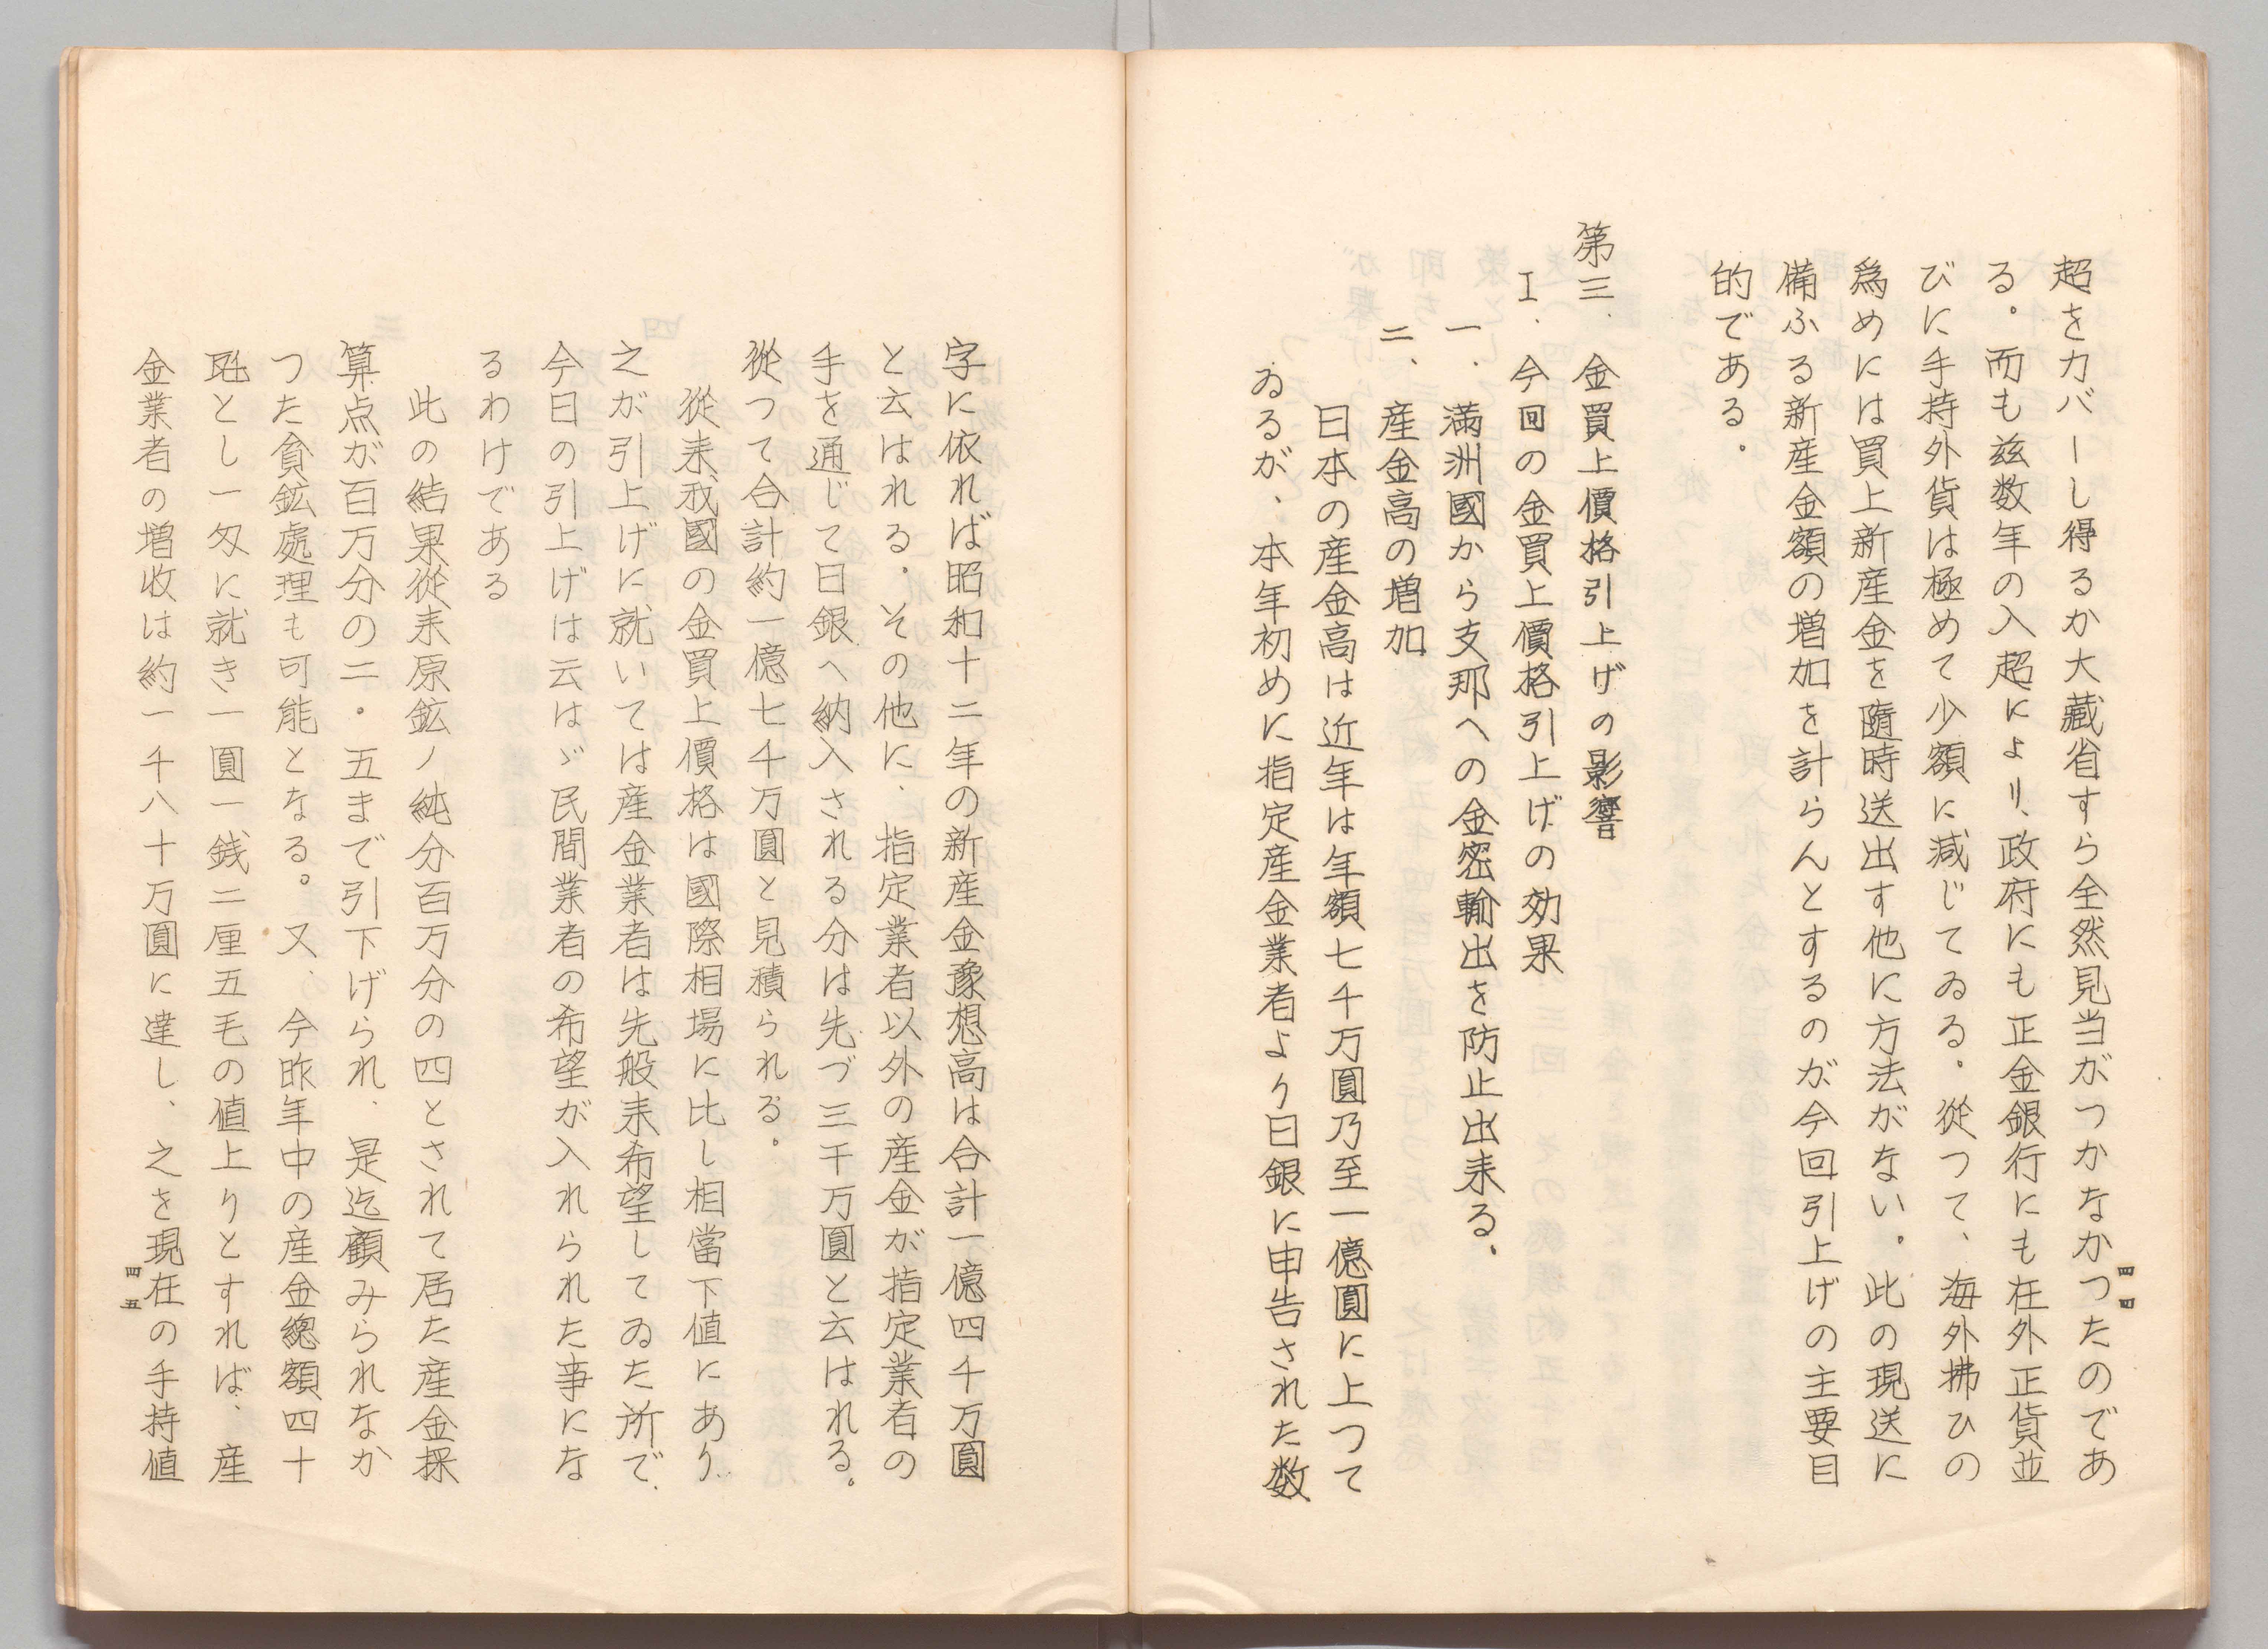 超をカバーし得るか大藏省すら全然見当がつかなかつたのであ
る。而も茲数年の入超により、政府にも正金銀行にも在外正貨並
びに手持外貨は極めて少額に減じてゐる。從つて、海外拂ひの
爲めには買上新産金を隨時送出す他に方法がない。此の現送に
備ふる新産金額の増加を計らんとするのが今回引上げの主要目
的である。
第三、金買上價格引上げの影響
I、今回の金買上價格引上げの効果
一、滿洲國から支那への金密輸出を防止出来る、
二、産金高の増加
日本の産金高は近年は年額七千万圓乃至一億圓に上つて
ゐるが、本年初めに指定産金業者より日銀に申告された数
四四
字に依れば昭和十二年の新産金豫想高は合計一億四千万圓
と云はれる。その他に、指定業者以外の産金が指定業者の
手を通じて日銀へ納入される分は先づ三千万圓と云はれる。
從つて合計約一億七千万圓と見積られる。
從来我國の金買上價格は國際相場に比し相當下値にあり
之が引上げに就いては産金業者は先般来希望してゐた所で、
今日の引上げは云はゞ民間業者の希望が入れられた事にな
るわけである
此の結果從来原鉱ノ純分百万分の四とされて居た産金採
算点が百万分の二・五まで引下げられ、是迄顧みられなか
つた貧鉱處理も可能となる。又、今昨年中の産金總額四十
瓲とし一匁に就き一圓一銭二厘五毛の値上りとすれば、産
金業者の増收は約一千八十万圓に達し、之を現在の手持値
四五